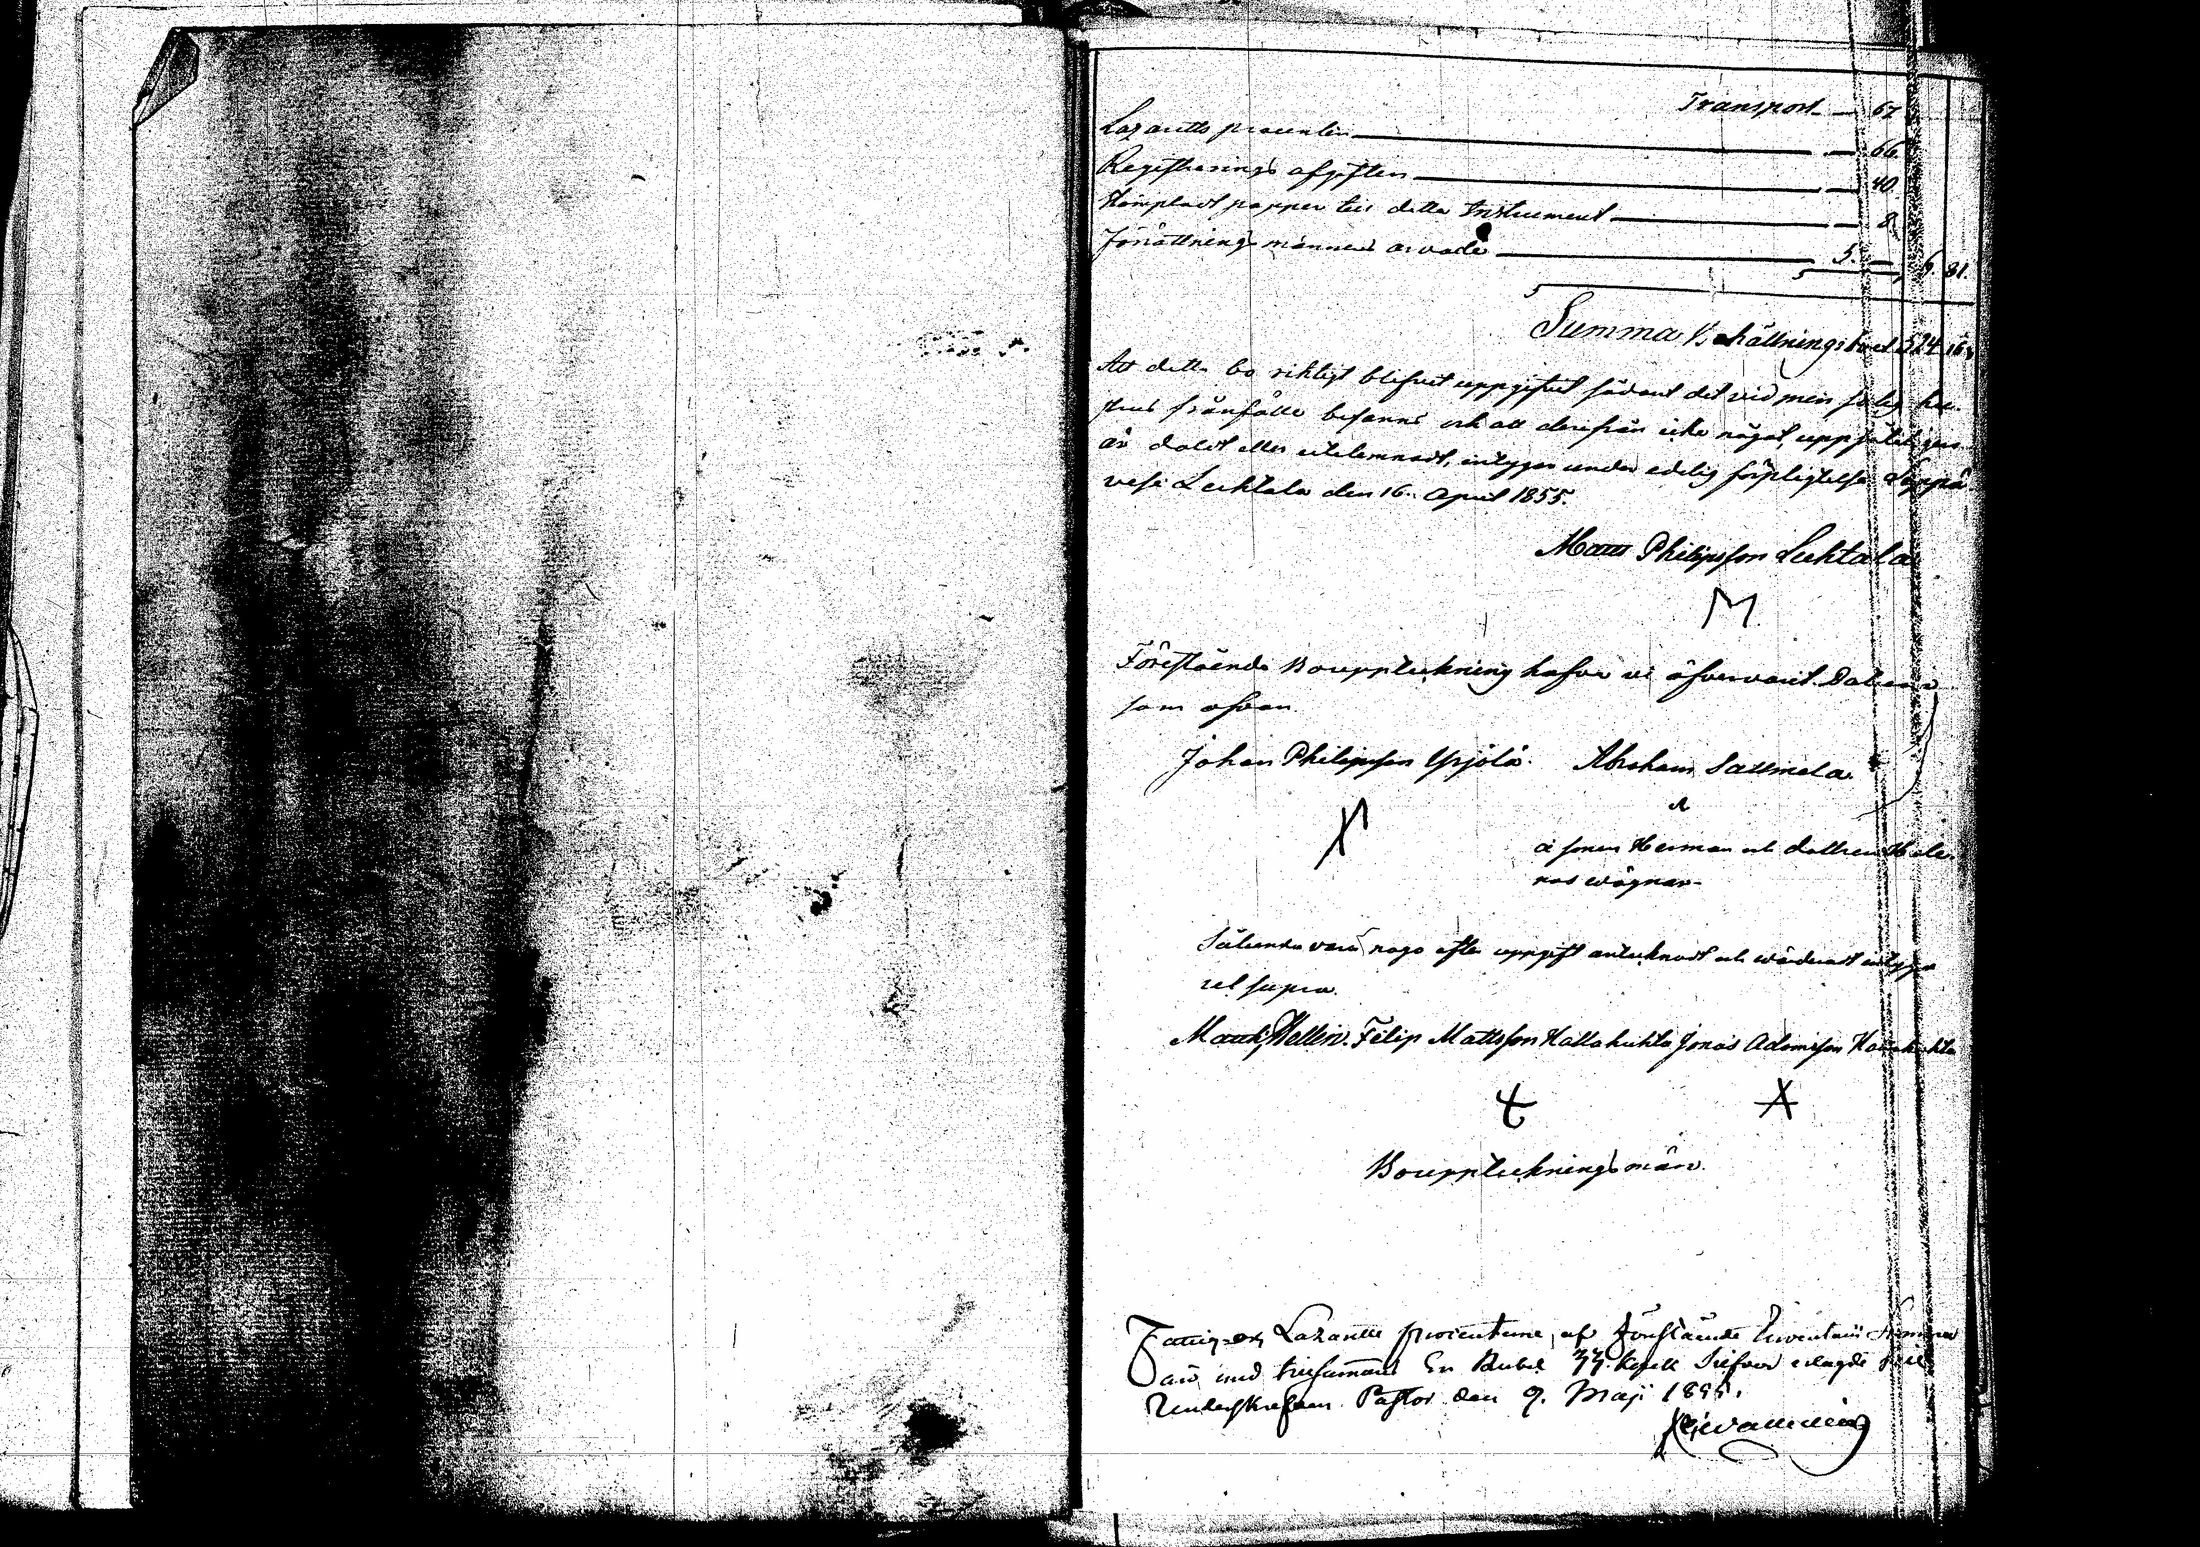 Transport — 67
Lazaretts procenten — 66.
Registrerings afgiften — 40.
Stämpladt papper till detta Instrument — 8
Förrättnings männens arvode 5. — 6 81.
Summa Behållning 524
Att detta bo riktigt blifvit uppgifvet sådant det vid min salig hu-
strus frånfälle befanns och att derifrån icke något uppsåtligen
är doldt eller utelemnadt, intygar under edelig förpligtelse Lappa
vesi Luhtala den 16. April 1855.
Matts Philipsson Luhtala
M
Förestående Bouppteckning hafve vi öfvervarit. Datum
som ofvan.
Johan Philipsson Yrjölä. Abraham Sallmela.
å sonen Herman och dottren Hele-
nas wägnar.
Sålunda vara efter uppgift antecknadt och wärderadt intyga
ut supra.
Matts Hellin. Filip Mattsson Kattakuhta Jonas Adamsson
Bouppteckningsmän.
Fattig- och Lazaretts procenterne af förestående Inventarii Summa
är med tillsammans En Rubel 33 kopek Silfver erlagde till
Underskrefven Pastor den 9. Maji 1855.